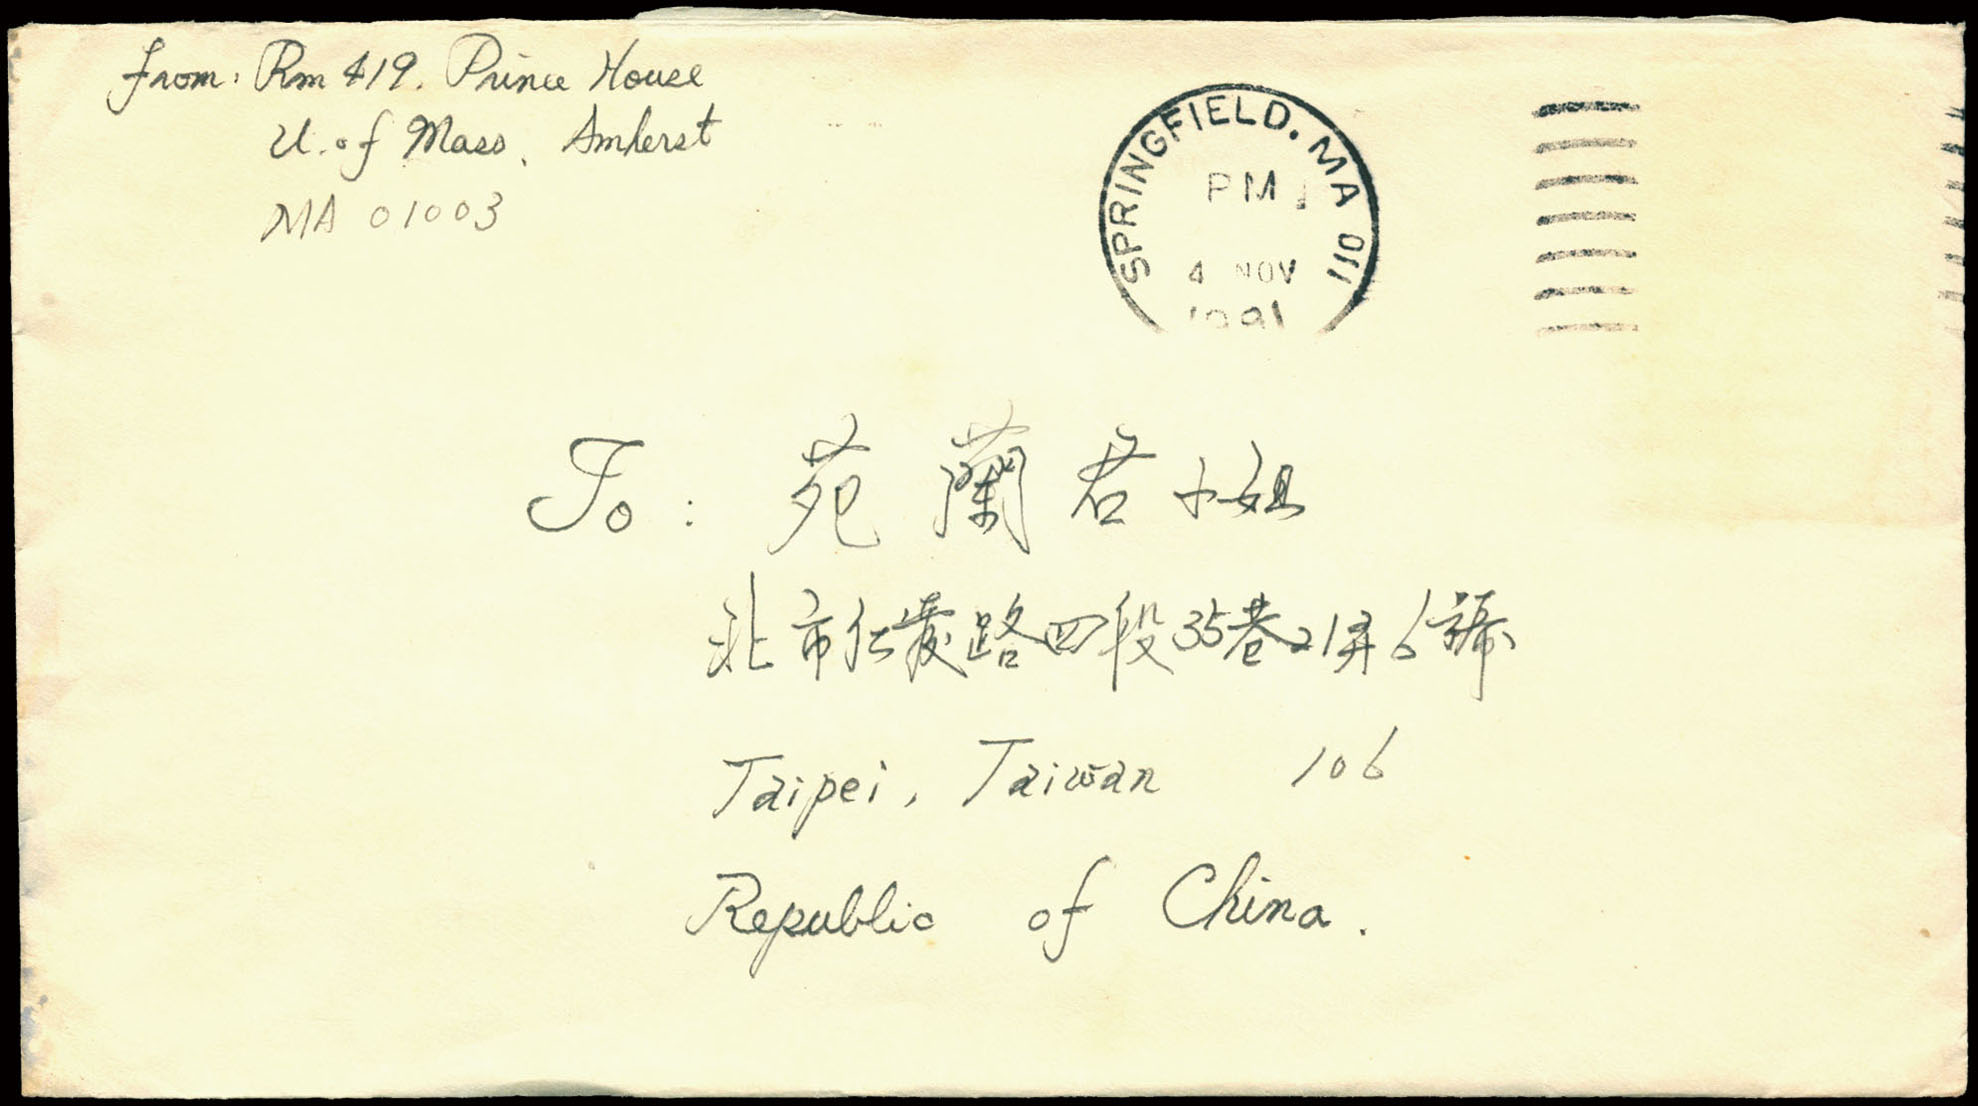 From: Rm 419. Prince House
U. of Mass. Amherst
MA 01003
SPRINGFIELD. MA 011
PM
4 NOV
1991
To: 苑蘭君小姐
北市仁愛路四段35巷21弄6號
Taipei, Taiwan 106
Republic of China.